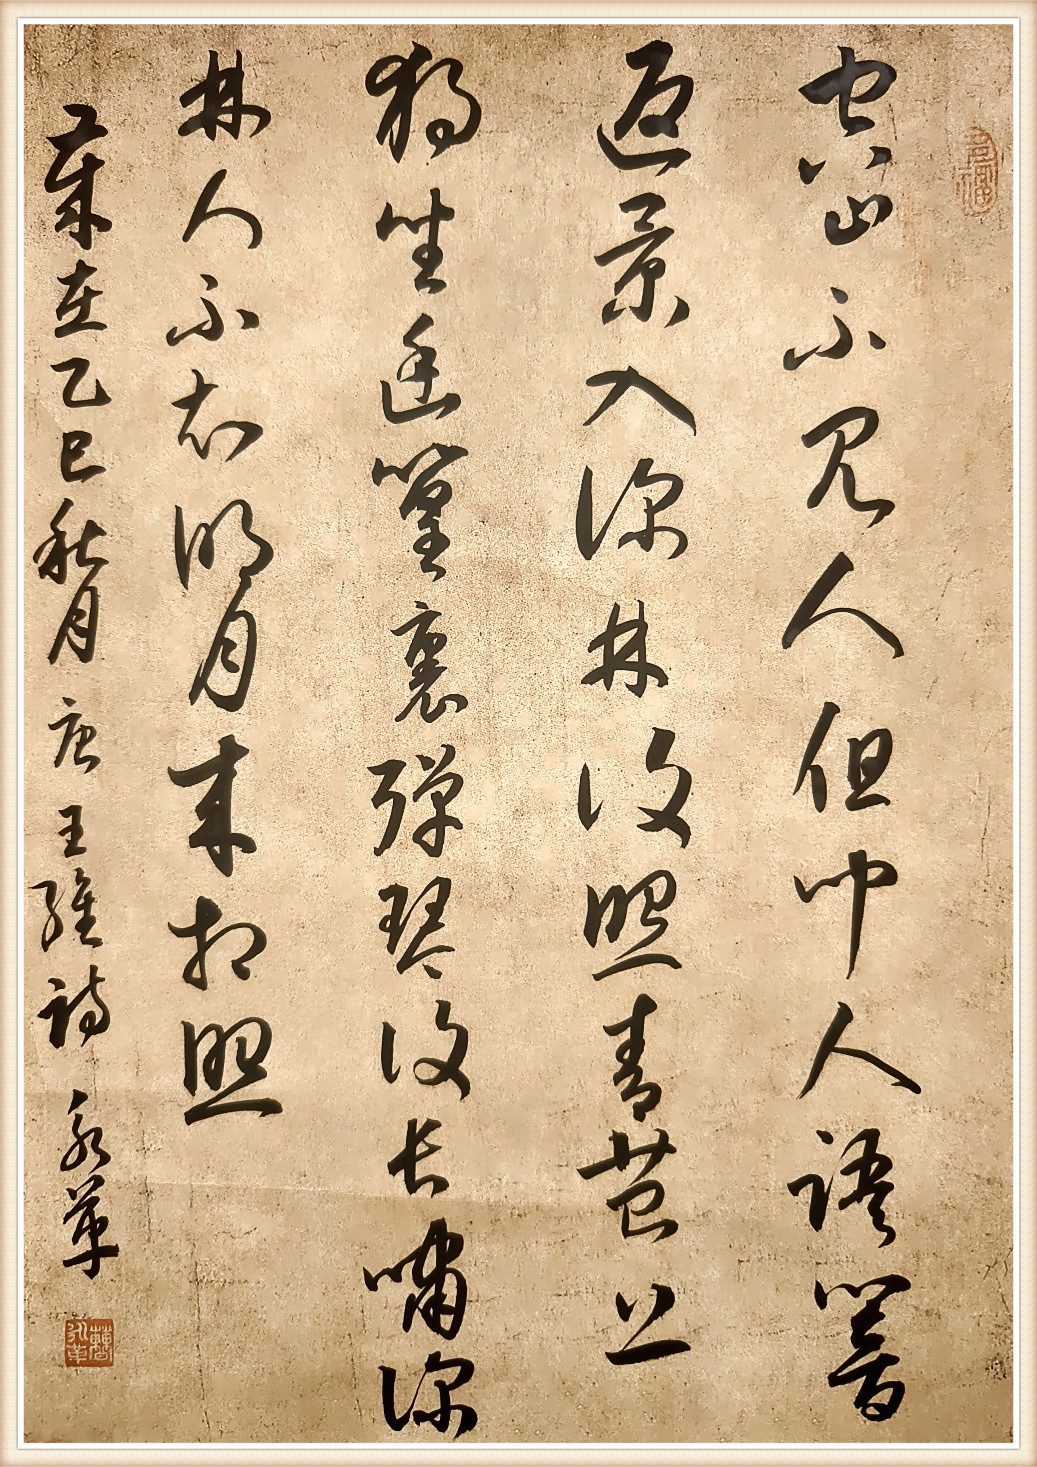 空山不見人但聞人語響
返景入深林復照青苔上
獨坐幽篁裏彈琴復長嘯深
林人不知明月來相照
歲在乙巳秋月唐王維詩永革